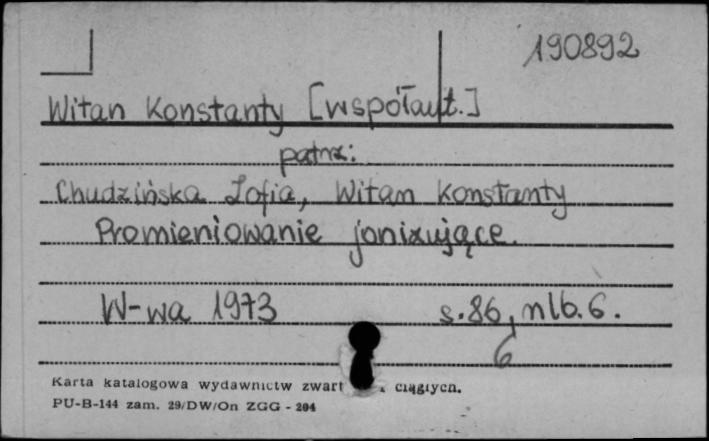 190892
Witan Konstanty [współaut.]
patrz:
Chudzińska Zofia, Witan Konstanty
Promieniowanie jonizujące.
W-wa 1973 s.86, nlb.6.
6
Karta katalogowa wydawnictw zwart ciągłych.
PU-B-144 zam. 29/DW/On ZGG - 204